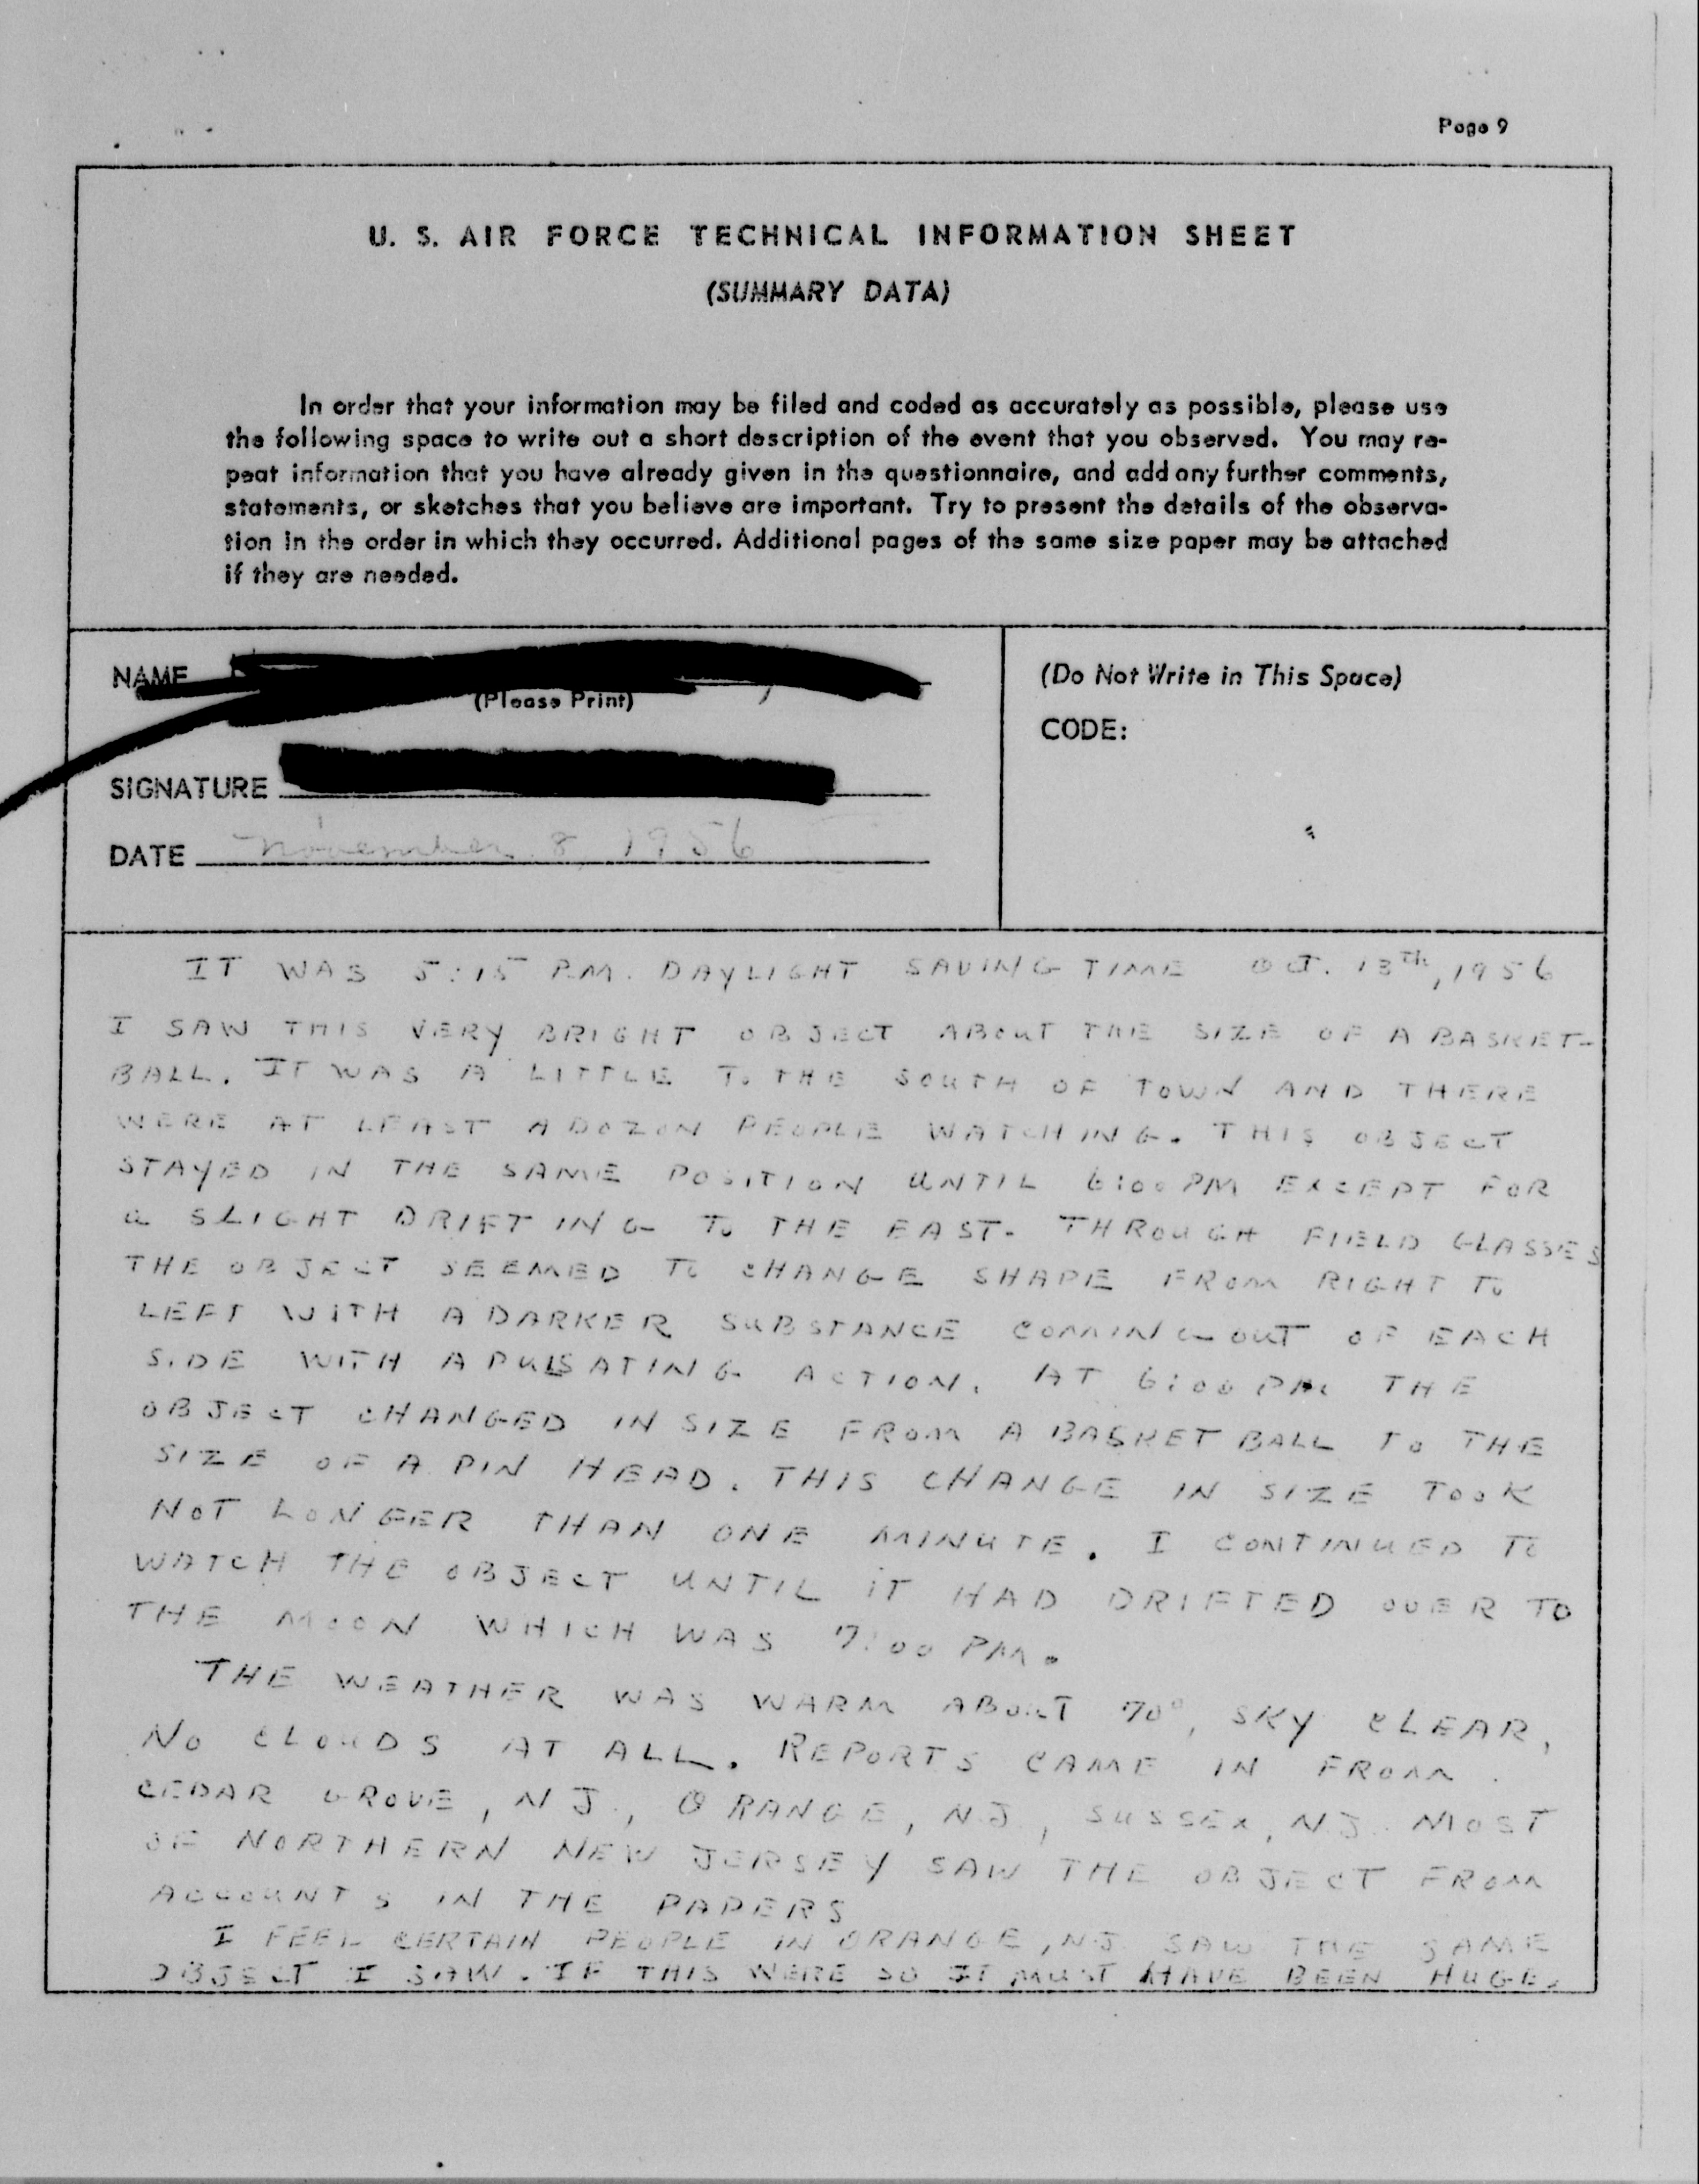 Page 9
U. S. AIR FORCE TECHNICAL INFORMATION SHEET
(SUMMARY DATA)
In order that your information may be filed and coded as accurately as possible, please use
the following space to write out a short description of the event that you observed. You may re-
peat information that you have already given in the questionnaire, and add any further comments,
statements, or sketches that you believe are important. Try to present the details of the observa-
tion in the order in which they occurred. Additional pages of the same size paper may be attached
if they are needed.
NAME
(Please Print)
SIGNATURE
DATE November 8, 1956
(Do Not Write in This Space)
CODE:
IT WAS 5:15 P.M. DAYLIGHT SAVING TIME OCT. 13TH, 1956
I SAW THIS VERY BRIGHT OBJECT ABOUT THE SIZE OF A BASKET-
BALL. IT WAS A LITTLE TO THE SOUTH OF TOWN AND THERE
WERE AT LEAST A DOZON PEOPLE WATCHING. THIS OBJECT
STAYED IN THE SAME POSITION UNTIL 6:00 PM EXCEPT FOR
a SLIGHT DRIFTING TO THE EAST. THROUGH FIELD GLASSES
THE OBJECT SEEMED TO CHANGE SHAPE FROM RIGHT TO
LEFT WITH A DARKER SUBSTANCE COMING OUT OF EACH
SIDE WITH A PULSATING ACTION. AT 6:00 PM THE
OBJECT CHANGED IN SIZE FROM A BASKET BALL TO THE
SIZE OF A PIN HEAD. THIS CHANGE IN SIZE TOOK
NOT LONGER THAN ONE MINUTE. I CONTINUED TO
WATCH THE OBJECT UNTIL IT HAD DRIFTED OVER TO
THE MOON WHICH WAS 7:00 PM.
THE WEATHER WAS WARM ABOUT 70°, SKY CLEAR,
NO CLOUDS AT ALL. REPORTS CAME IN FROM
CEDAR GROVE, N.J., ORANGE, N.J., SUSSEX, N.J. MOST
OF NORTHERN NEW JERSEY SAW THE OBJECT FROM
ACCOUNTS IN THE PAPERS
I FEEL CERTAIN PEOPLE IN ORANGE, N.J. SAW THE SAME
OBJECT I SAW. IF THIS WERE SO IT MUST HAVE BEEN HUGE.